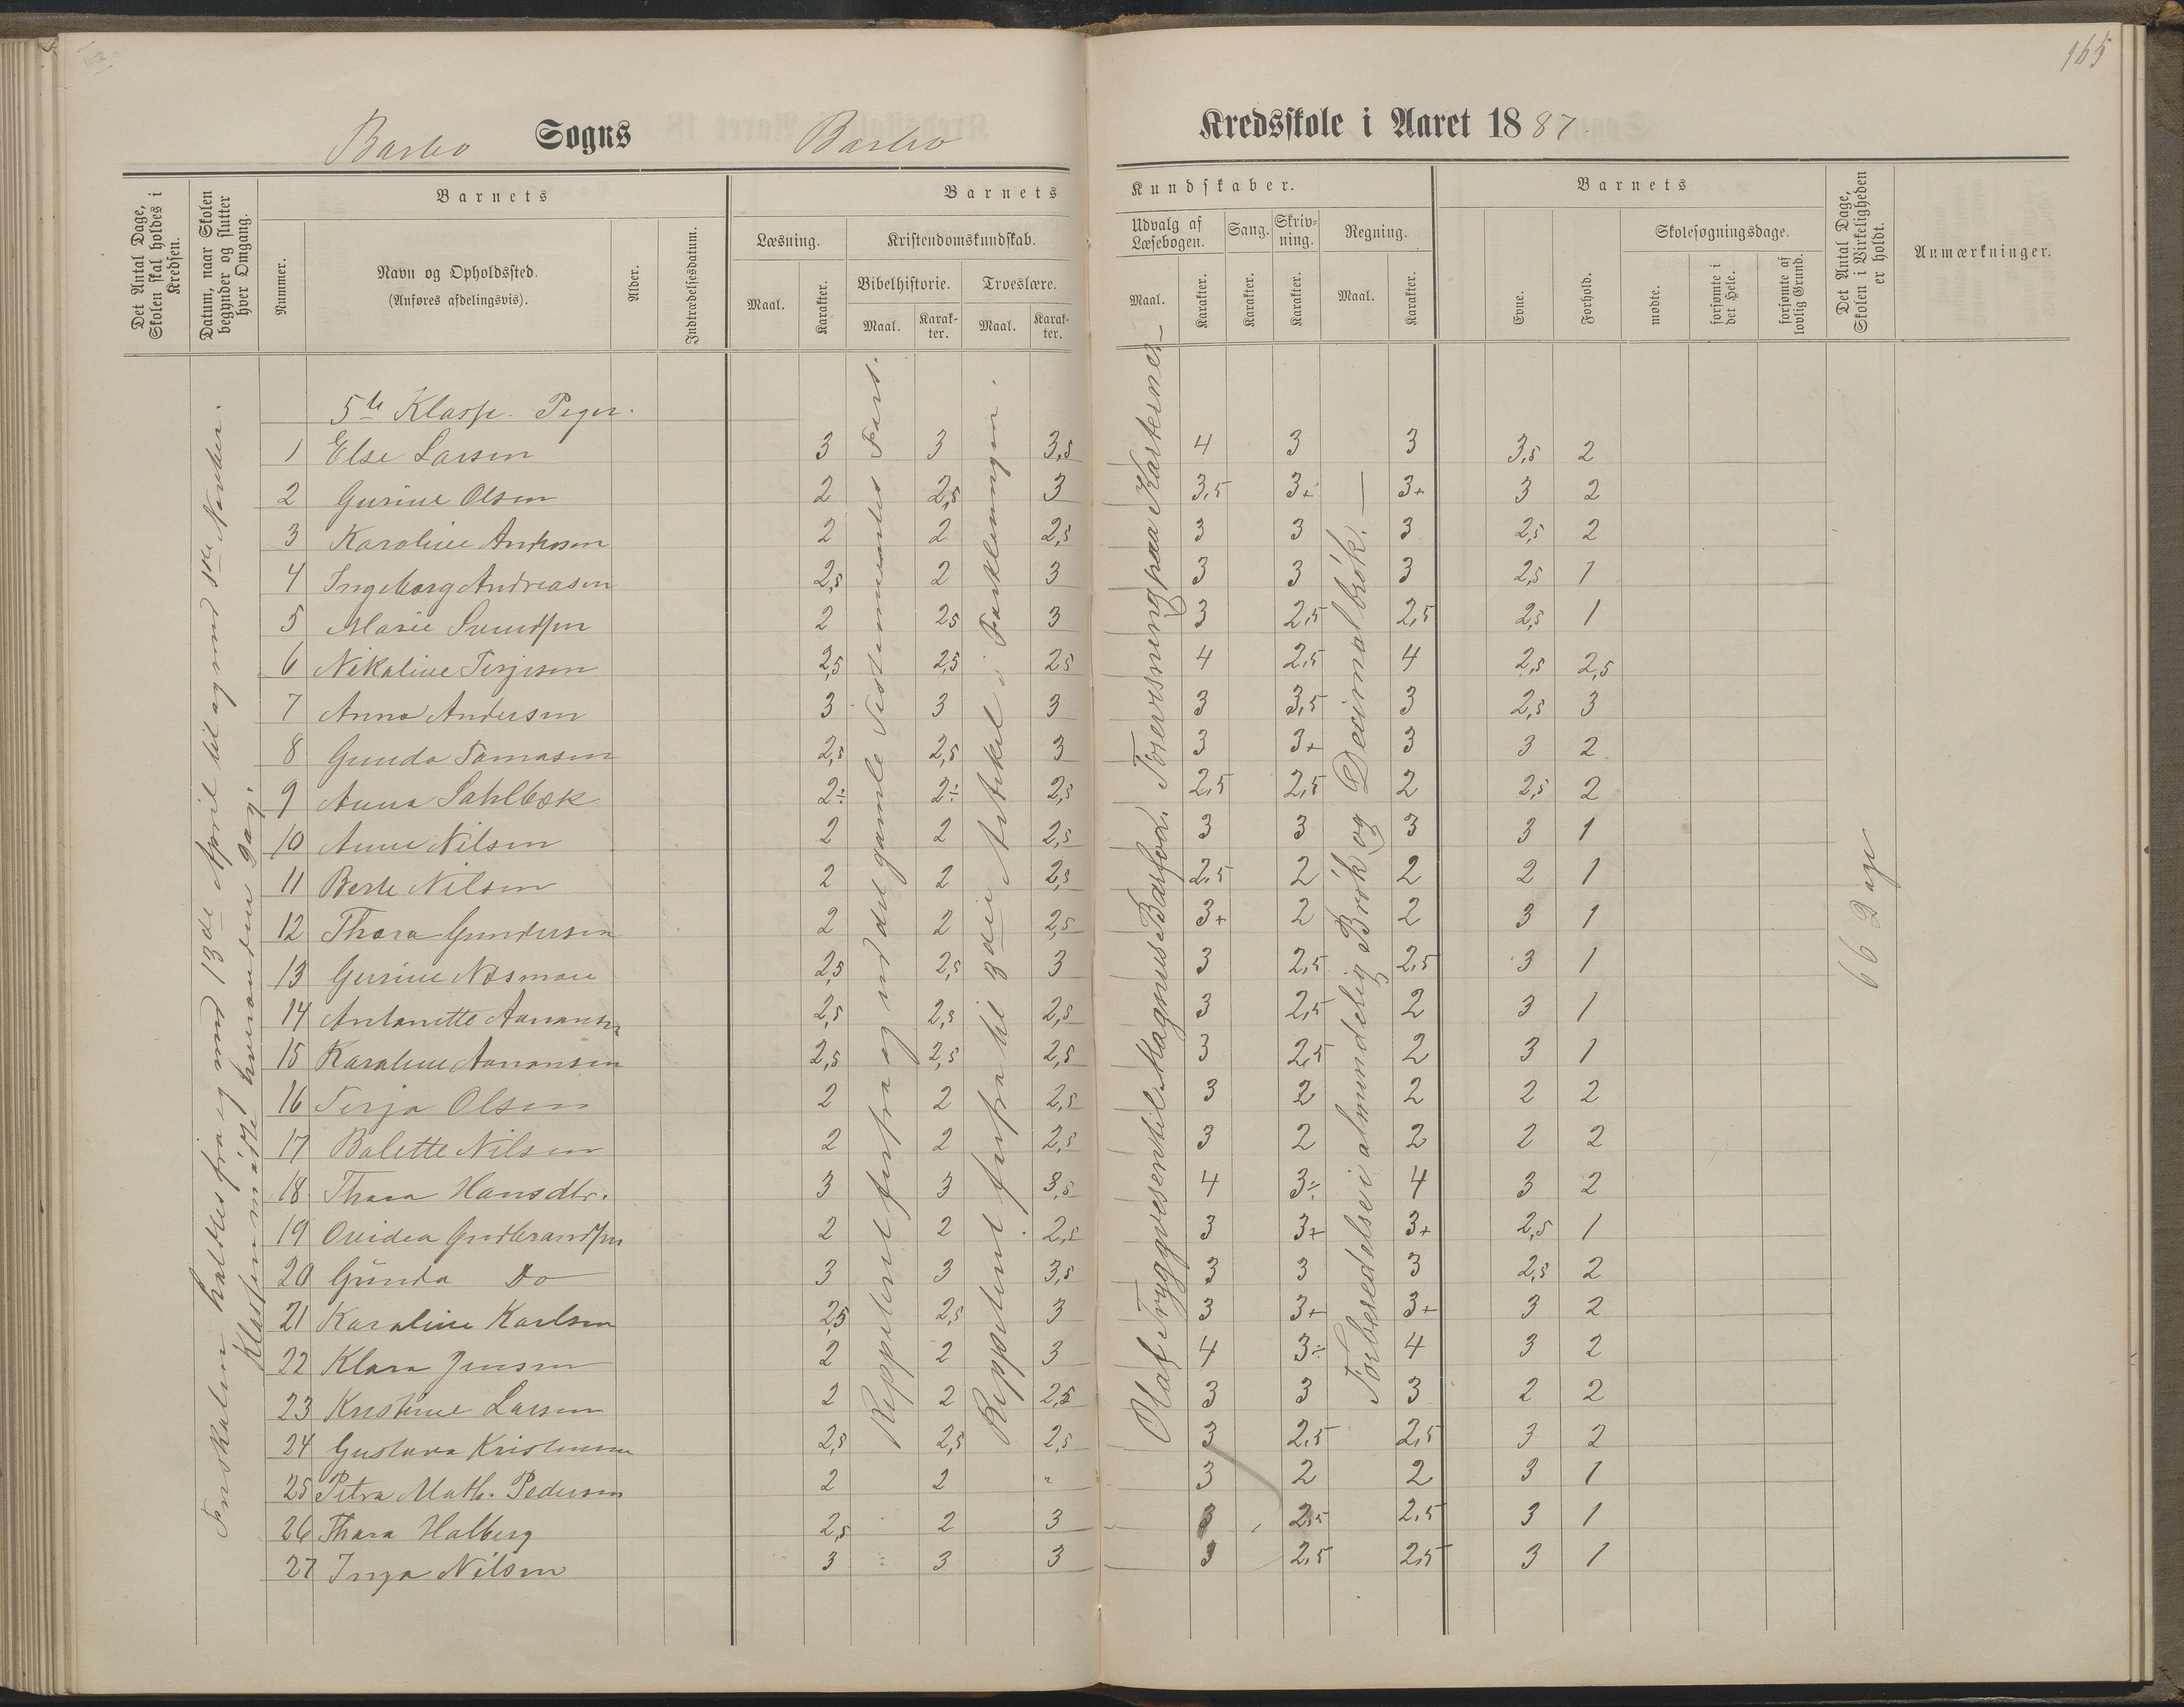 165
Barbo Sogns Barbo Kredsskole i Aaret 1887.
Det Antal Dage, Skolen skal holdes i Kredsen.
Datum, naar Skolen begynder og slutter hver Omgang.
Nummer.
Barnets
Navn og Opholdssted.
(Anføres afdelingsvis).
Alder.
Indtrædelsesdatum.
Barnets Kundskaber.
Læsning.
Maal.
Karakter.
Kristendomskundskab.
Bibelhistorie.
Maal.
Karakter.
Troeslære.
Maal.
Karakter.
Udvalg af Læsebogen.
Maal.
Karakter.
Sang.
Karakter.
Skrivning.
Karakter.
Regning.
Maal.
Karakter.
Barnets
Evne.
Forhold.
Skolesøgningsdage.
mødte.
forsømte i det Hele.
forsømte af lovlig Grund.
Det Antal Dage, Skolen i Virkeligheden er holdt.
Anmærkninger.
5te Klasse. Piger.
1 Else Larsen 3 3 3,5 4 3 3 3,5 2
2 Gurine Olsen 2 2,5 3 3,5 3+ 3+ 3 2
3 Karoline Andersen 2 2 2,5 3 3 3 2,5 2
4 Ingeborg Andreasen 2,5 2 3 3 3 3 2,5 1
5 Marie Svendsen 2 2,5 3 3 2,5 2,5 2,5 1
6 Nikoline Terjesen 2,5 2,5 2,5 4 2,5 4 2,5 2,5
7 Anna Andersen 3 3 3 3 3,5 3 2,5 3
8 Gunda Tomasen 2,5 2,5 3 3 3+ 3 3 2
9 Anna Sahlbæk 2÷ 2÷ 2,5 2,5 2,5 2 2,5 2
10 Anne Nilsen 2 2 2,5 3 3 3 3 1
11 Berte Nilsen 2 2 2,5 2,5 2 2 2 1
12 Thora Gundersen 2 2 2,5 3+ 2 2 3 1
13 Gurine Næsman 2,5 2,5 3 3 2,5 2,5 3 1
14 Antonette Aanonsen 2,5 2,5 2,5 3 2,5 2 3 1
15 Karoline Aanonsen 2,5 2,5 2,5 3 2,5 2 3 1
16 Terja Olsen 2 2 2,5 3 2 2 2 2
17 Bolette Nilsen 2 2 2,5 3 2 2 2 2
18 Thora Hansdtr. 3 3 3,5 4 3÷ 4 3 2
19 Ovidea Gudbrandsen 2 2 2,5 3 3+ 3+ 2,5 1
20 Gunda Do 3 3 3,5 3 3 3 2,5 2
21 Karoline Karlsen 2,5 2,5 3 3 3+ 3+ 3 2
22 Klara Jensen 2 2 3 4 3÷ 4 3 2
23 Kristine Larsen 2 2 2,5 3 3 3 2 2
24 Gustava Kristensen 2,5 2,5 2,5 3 2,5 2,5 3 2
25 Petra Math. Pedersen 2 2 " 3 2 2 3 1
26 Thora Halberg 2,5 2 3 3 2,5 2,5 3 1
27 Inga Nilsen 3 3 3 3 2,5 2,5 3 1
holdtes fra og med 13de April til og med 1ste
Klassen mødte hveranden Dag.
Reppeteret forfra og ud det gamle Testamentes
Reppeteret forfra til 3die Artikel i Forklaringen.
Olaf Tryggvesen til Magnus Barfod. Forevisning paa Karterne.
Forberedelse i almindelig Brøk og Decimalbrøk.
66 Dage